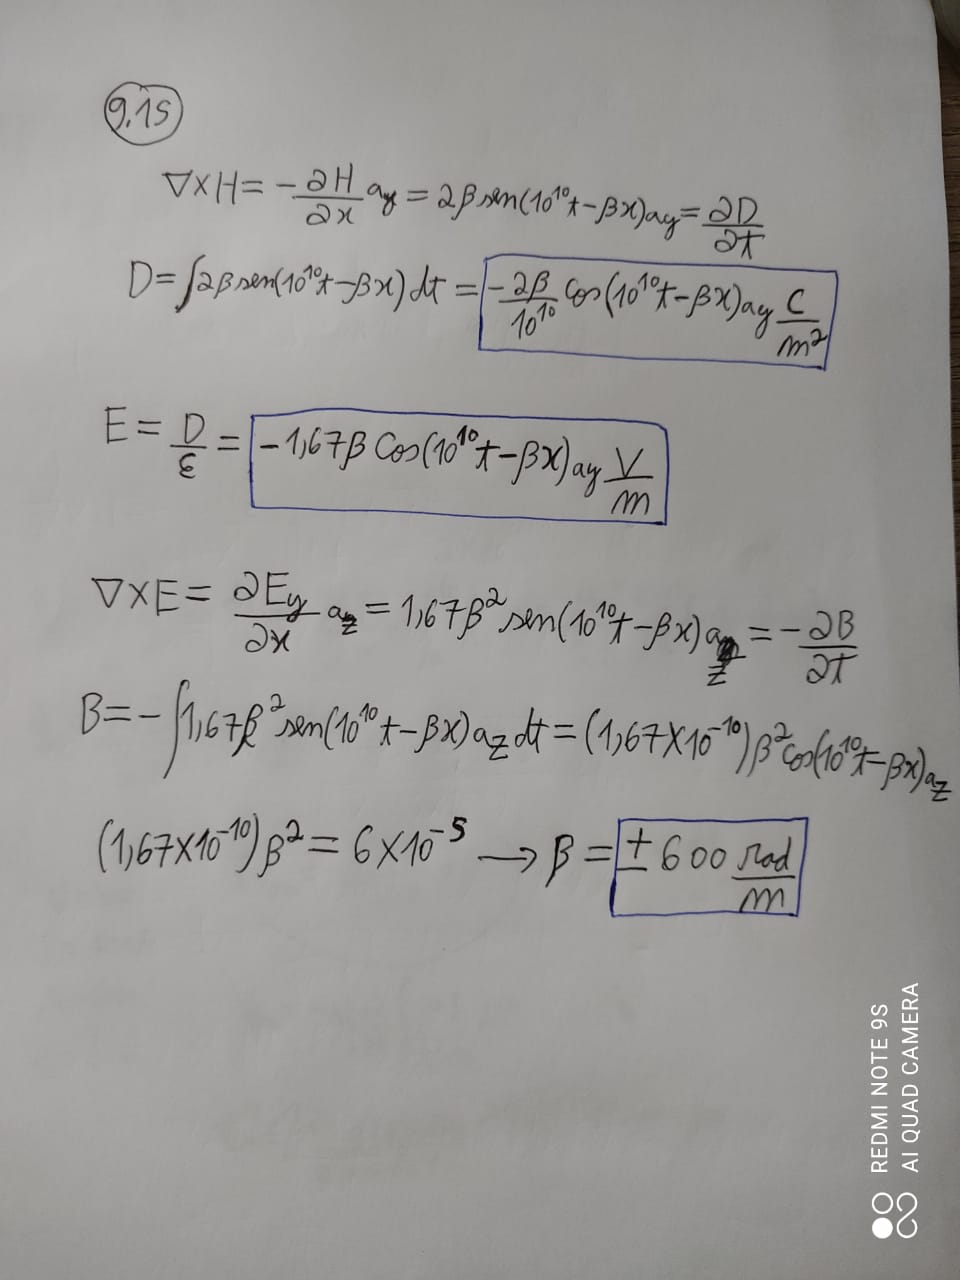 9.15
∇×H = -∂H/∂x ay = 2β sen(10¹⁰t-βx)ay = ∂D/∂t
D = ∫2β sen(10¹⁰t-βx) dt = -2β/10¹⁰ Cos(10¹⁰t-βx)ay C/m²
E = D/ε = -1,67β Cos(10¹⁰t-βx)ay V/m
∇×E = ∂Ey/∂x az = 1,67β² sen(10¹⁰t-βx)az = -∂B/∂t
B = -∫1,67β² sen(10¹⁰t-βx)az dt = (1,67×10⁻¹⁰)β² cos(10¹⁰t-βx)az
(1,67×10⁻¹⁰)β² = 6×10⁻⁵ → β = ±600 rad/m
REDMI NOTE 9S
AI QUAD CAMERA